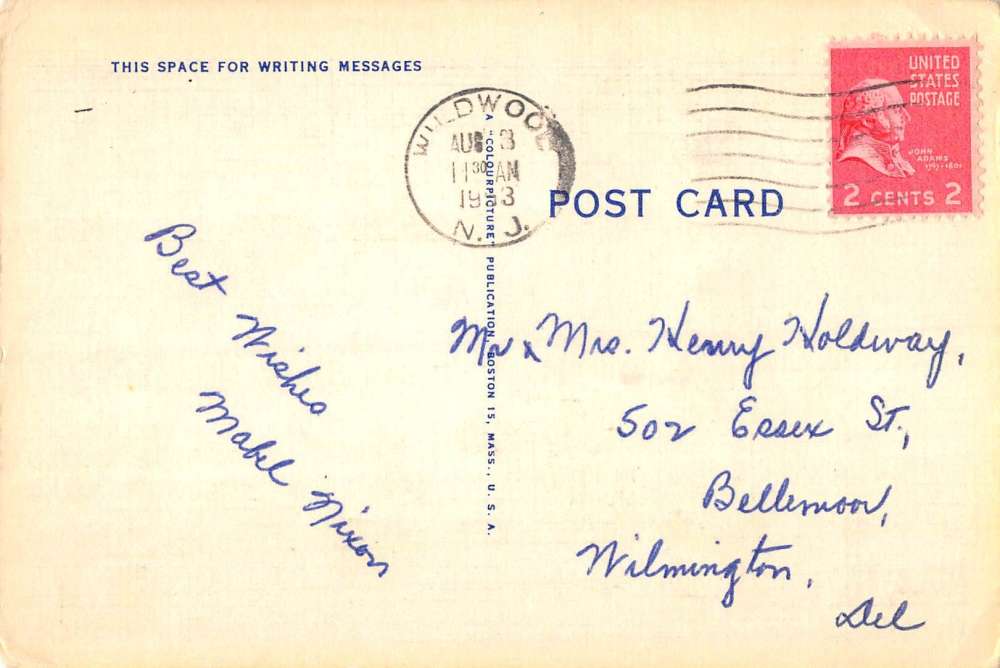 THIS SPACE FOR WRITING MESSAGES
WILDWOOD
AUG 3
11 30 AM
1953
N. J.
UNITED
STATES
POSTAGE
JOHN
ADAMS
1797-1801
2 CENTS 2
POST CARD
A "COLOURPICTURE" PUBLICATION, BOSTON 15, MASS., U. S. A.
Best Wishes
Mabel Nixon
Mr & Mrs. Henry Holdway,
502 Essex St.,
Bellemoor,
Wilmington,
Del